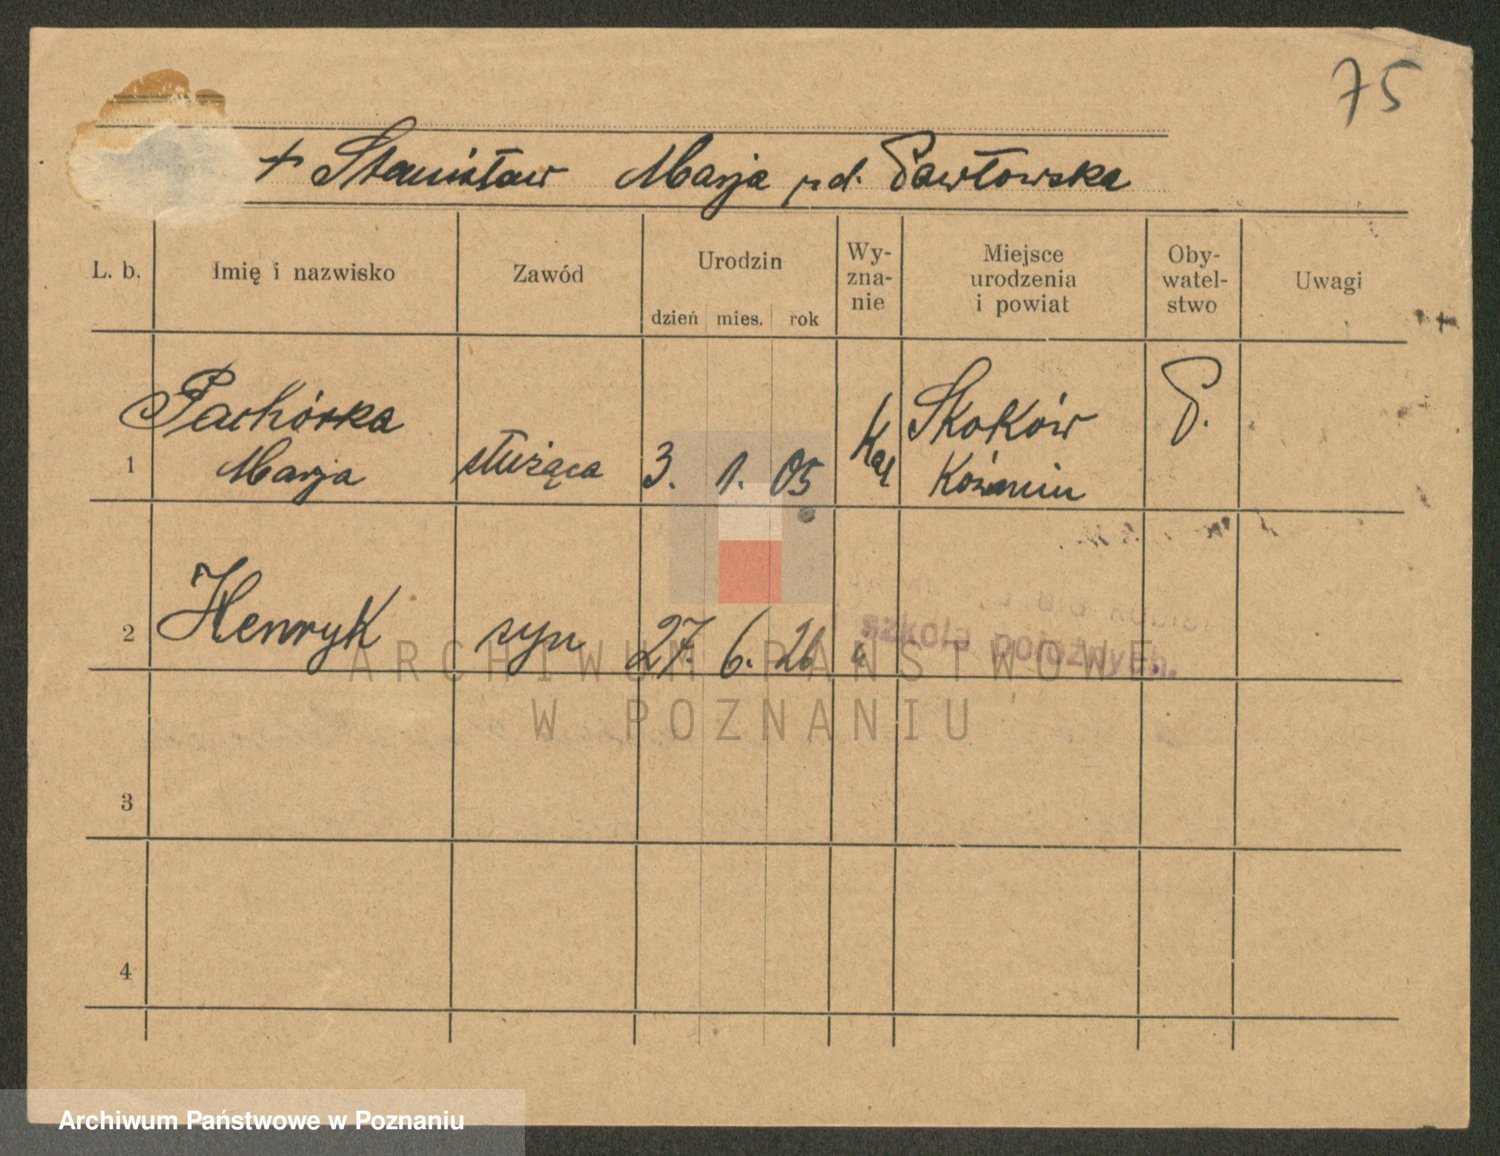 75
+ Stanisław Marja rd. Pawłowska
L. b. Imię i nazwisko Zawód Urodzin dzień mies. rok Wy-zna-nie Miejsce urodzenia i powiat Oby-watel-stwo Uwagi
Pachórka Skoków P.
1 Marja służąca 3. 1. 05 Kat Koźmin
2 Henryk syn 27. 6. 26 "
szkola położnych.
ARCHIWUM PAŃSTWOWE
W POZNANIU
3
4
Archiwum Państwowe w Poznaniu